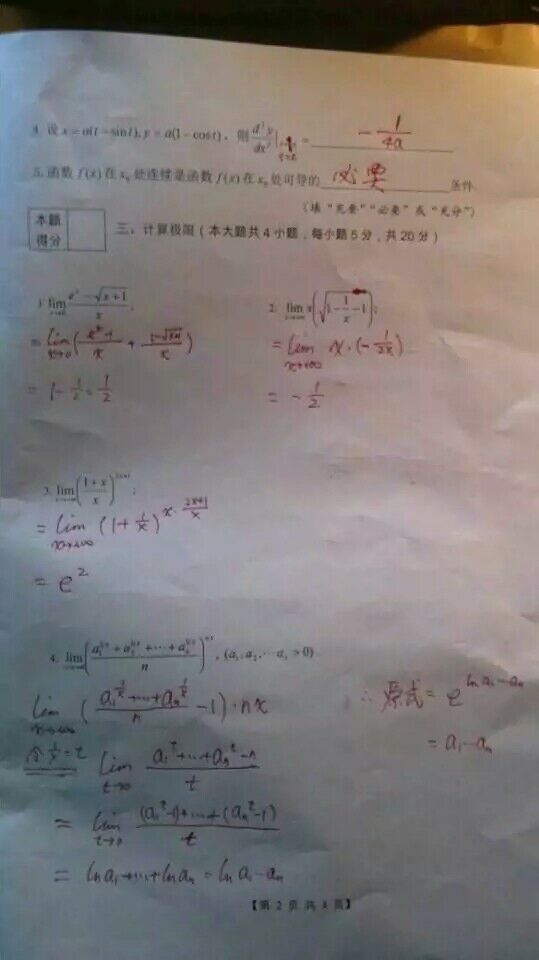 4. 设 x = a(t − sin t), y = a(1 − cos t), 则 d²y/dx²| = −1/4a
5. 函数 f(x) 在 x₀ 处连续是函数 f(x) 在 x₀ 处可导的 必要 条件.
(填 "充要" "必要" 或 "充分")
本题得分
三、计算极限(本大题共4小题，每小题5分，共20分)
1. lim (eˣ − √(x+1))/x ;
= lim x→0 ( (eˣ−1)/x + (1−√(x+1))/x )
= 1 − 1/2 = 1/2
2. lim x(√(1 − 1/x) − 1);
= lim x→+∞ x·(−1/2x)
= −1/2
3. lim ((1+x)/x) ;
= lim x→+∞ (1 + 1/x)^(x·(2x+1)/x)
= e²
4. lim ((a₁^(1/x) + a₂^(1/x) + ⋯ + aₙ^(1/x))/n)^(nx), (a₁, a₂, ⋯ aₙ > 0)
lim x→+∞ ((a₁^(1/x) + ⋯ + aₙ^(1/x))/n − 1)·nx
令 1/x = t lim t→0 (a₁ᵗ + ⋯ + aₙᵗ − n)/t
= lim t→0 ((a₁ᵗ−1) + ⋯ + (aₙᵗ−1))/t
= ln a₁ + ⋯ + ln aₙ = ln a₁⋯aₙ
∴ 原式 = e^(ln a₁⋯aₙ)
= a₁⋯aₙ
【第 2 页 共 4 页】